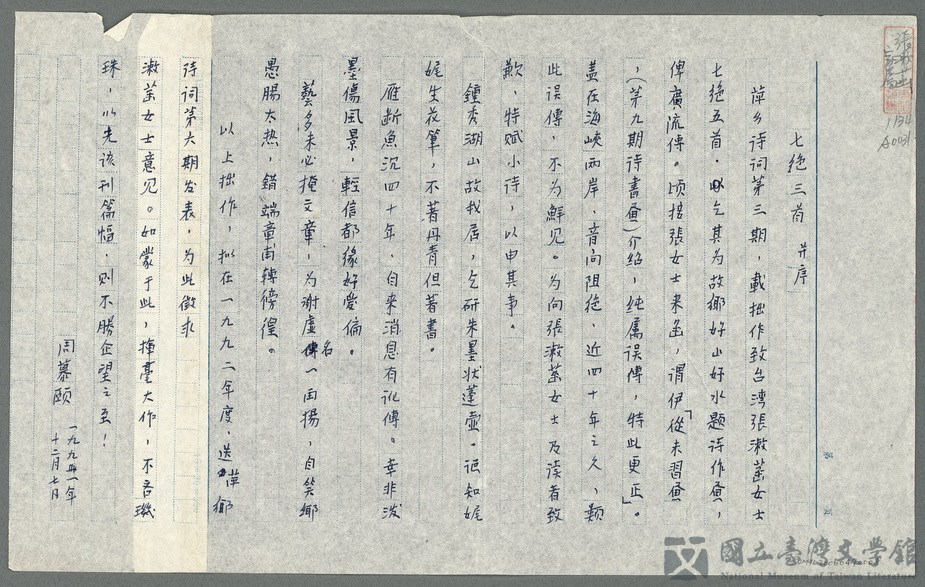 七绝三首 并序
萍乡诗词第三期，載拙作致台湾張漱菡女士
七绝五首．乞其为故鄉好山好水题诗作畫，
俾廣流傳。顷接張女士来函，謂伊「從未習畫
，(第九期诗書畫)介绍，纯属误傳，特此更正」。
盖在海峽两岸、音问阻绝、近四十年之久，類
此误傳，不为鮮见。为向張漱菡女士及读者致
歉，特赋小诗，以申其事。
鍾秀湖山故我居，乞研朱墨状蓬壺。讵知妮
妮生花筆，不著丹青但著書。
雁断魚沉四十年，自来消息有讹傳。幸非泼
墨傷風景，輕信都缘好愛偏。
藝多未必掩文章，为谢虚名一闡揚，自笑鄉
愚腸太热，錯端章甫轉徬徨。
以上拙作，拟在一九九二年度，送萍鄉
诗词第六期发表，为此徵求
漱菡女士意见。如蒙于此，揮毫大作，不吝璣
珠，以光该刊篇幅，则不勝企望之至！
周慕颐
一九九一年
十二月七日
國立臺灣文學館
National Museum of Taiwan Literature